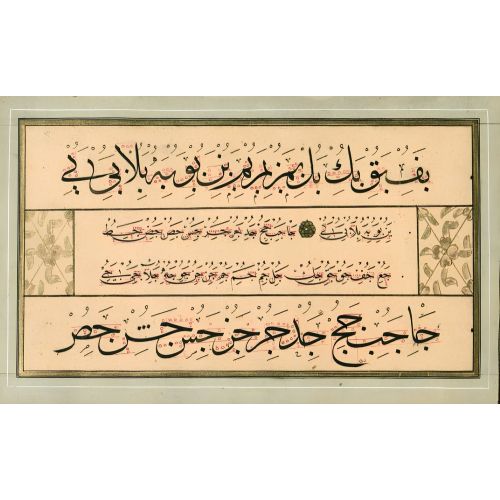 بف بق بك بل بم بم بم بن بو به بلا بى بى
بن بو به بلا بى بى جا جب جج جد جر جس جص جط
جع جف جق جل جم جم جن جو جه جلا جى جى
جا جب جج جد جر جز جس جش جص